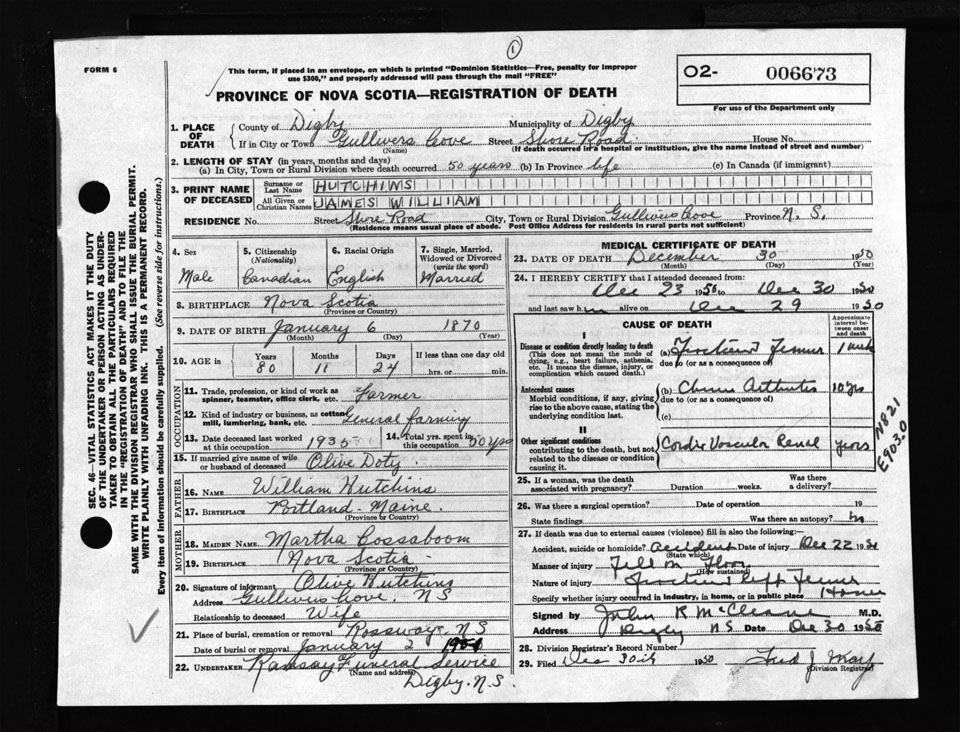 ①
FORM 6
This form, if placed in an envelope, on which is printed "Dominion Statistics—Free, penalty for improper
use $300," and properly addressed will pass through the mail "FREE"
PROVINCE OF NOVA SCOTIA—REGISTRATION OF DEATH
O2- 006673
For use of the Department only
SEC. 46—VITAL STATISTICS ACT MAKES IT THE DUTY
OF THE UNDERTAKER OR PERSON ACTING AS UNDER-
TAKER TO OBTAIN ALL THE PARTICULARS REQUIRED
IN THE "REGISTRATION OF DEATH" AND TO FILE THE
SAME WITH THE DIVISION REGISTRAR WHO SHALL ISSUE THE BURIAL PERMIT.
WRITE PLAINLY WITH UNFADING INK. THIS IS A PERMANENT RECORD.
Every item of information should be carefully supplied. (See reverse side for instructions.)
1. PLACE OF DEATH
County of Digby Municipality of Digby
If in City or Town Gullivers Cove Street Shore Road House No.
(Name) (If death occurred in a hospital or institution, give the name instead of street and number)
2. LENGTH OF STAY (in years, months and days)
(a) In City, Town or Rural Division where death occurred 50 years (b) In Province life (c) In Canada (if immigrant)
3. PRINT NAME OF DECEASED
Surname or Last Name HUTCHINS
All Given or Christian Names JAMES WILLIAM
RESIDENCE No. Street Shore Road City, Town or Rural Division Gullivers Cove Province N. S.
(Residence means usual place of abode. Post Office Address for residents in rural parts not sufficient)
4. Sex Male
5. Citizenship (Nationality) Canadian
6. Racial Origin English
7. Single, Married, Widowed or Divorced (write the word) Married
8. BIRTHPLACE Nova Scotia
(Province or Country)
9. DATE OF BIRTH January 6 1870
(Month) (Day) (Year)
10. AGE in Years Months Days If less than one day old
80 11 24 hrs. or min.
OCCUPATION
11. Trade, profession, or kind of work as
spinner, teamster, office clerk, etc. Farmer
12. Kind of industry or business, as cotton
mill, lumbering, bank, etc. General farming
13. Date deceased last worked at this occupation 1935
14. Total yrs. spent in this occupation 50 yrs
15. If married give name of wife
or husband of deceased Olive Doty
FATHER
16. NAME William Hutchins
17. BIRTHPLACE Portland - Maine.
(Province or Country)
MOTHER
18. MAIDEN NAME Martha Cossaboom
19. BIRTHPLACE Nova Scotia
(Province or Country)
20. Signature of informant Olive Hutchins
Address Gullivers Cove, N S
Relationship to deceased Wife
21. Place of burial, cremation or removal Rossway, N S
Date of burial or removal January 2 1951
22. UNDERTAKER Ramsay Funeral Service
(Name and address)
Digby, N. S.
MEDICAL CERTIFICATE OF DEATH
23. DATE OF DEATH December 30 1950
(Month) (Day) (Year)
24. I HEREBY CERTIFY that I attended deceased from:
Dec 23 1950 to Dec 30 1950
and last saw him alive on Dec 29 1950
CAUSE OF DEATH
Approximate interval between onset and death
I
Disease or condition directly leading to death
(This does not mean the mode of
dying, e.g., heart failure, asthenia,
etc. It means the disease, injury, or
complication which caused death.)
(a) Fractured Femur 1 week
due to (or as a consequence of)
Antecedent causes
Morbid conditions, if any, giving
rise to the above cause, stating the
underlying condition last.
(b) Chronic Arthritis 10 yrs
due to (or as a consequence of)
(c)
II
Other significant conditions
contributing to the death, but not
related to the disease or condition
causing it.
Cordio Vascular Renal years
N821
E903.0
25. If a woman, was the death
associated with pregnancy? Duration weeks. Was there a delivery?
26. Was there a surgical operation? Date of operation 19
State findings Was there an autopsy? no
27. If death was due to external causes (violence) fill in also the following:
Accident, suicide or homicide? accident Date of injury Dec 22 1950
(State which)
Manner of injury Fell on Floor
(How sustained)
Nature of injury Fractured Femur
Specify whether injury occurred in industry, in home, or in public place Home
Signed by John R McCleave M.D.
Address Digby N S Date Dec 30 1950
28. Division Registrar's Record Number
29. Filed Dec 30th 1950 Fred J.
Division Registrar